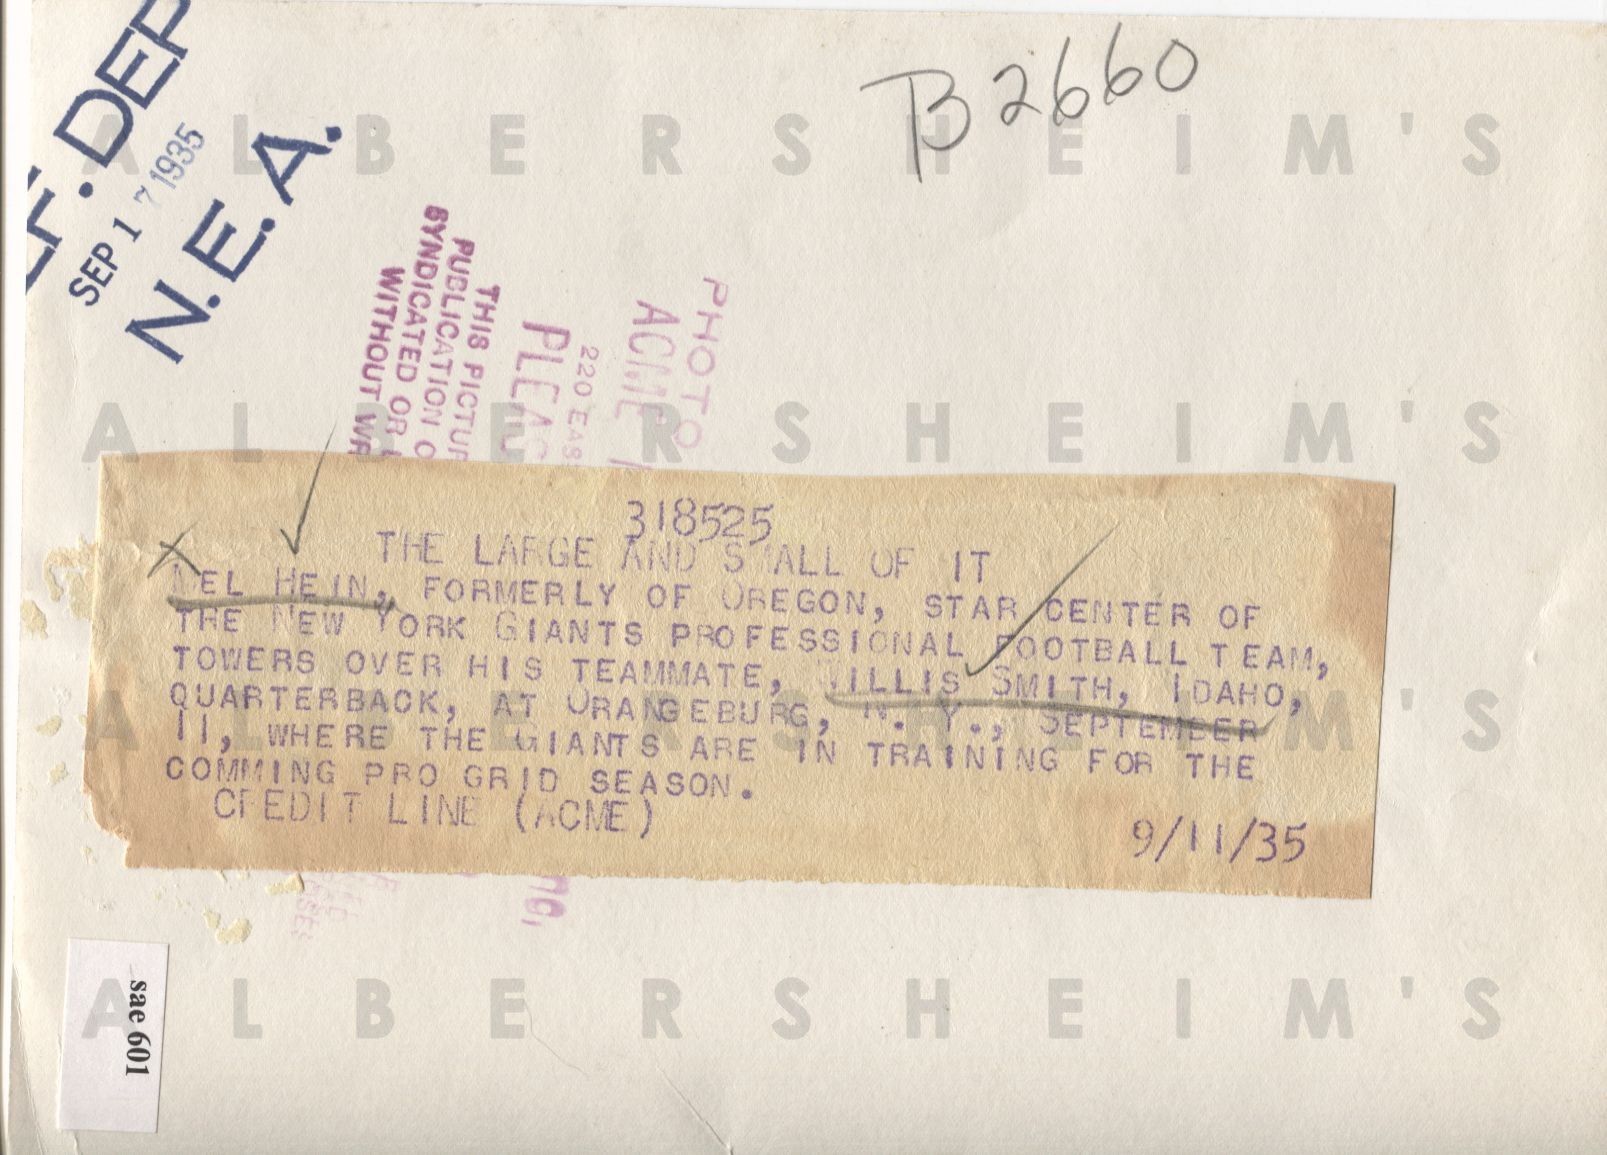 B2660
EF. DEP
SEP 17 1935
N.E.A.
PHOTO
ACME
220 EAS
PLEAS
THIS PICTUR
PUBLICATION O
SYNDICATED OR
WITHOUT WR
318525
THE LARGE AND SMALL OF IT
MEL HEIN, FORMERLY OF OREGON, STAR CENTER OF
THE NEW YORK GIANTS PROFESSIONAL FOOTBALL TEAM,
TOWERS OVER HIS TEAMMATE, WILLIS SMITH, IDAHO,
QUARTERBACK, AT ORANGEBURG, N. Y., SEPTEMBER
11, WHERE THE GIANTS ARE IN TRAINING FOR THE
COMMING PRO GRID SEASON.
CREDIT LINE (ACME)
9/11/35
sae 601
ALBERSHEIM'S
ALBERSHEIM'S
ALBERSHEIM'S
ALBERSHEIM'S